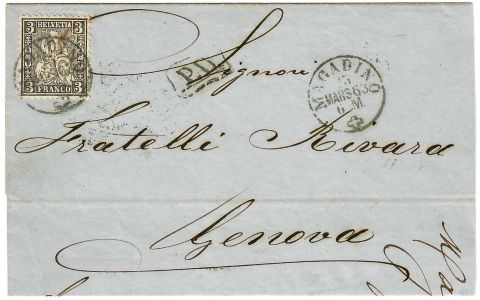 3 HELVETIA 3
3 FRANCO 3
P.D.
MAGADINO
15
MARS 63
6 M
Signori
Fratelli Rivara
Genova